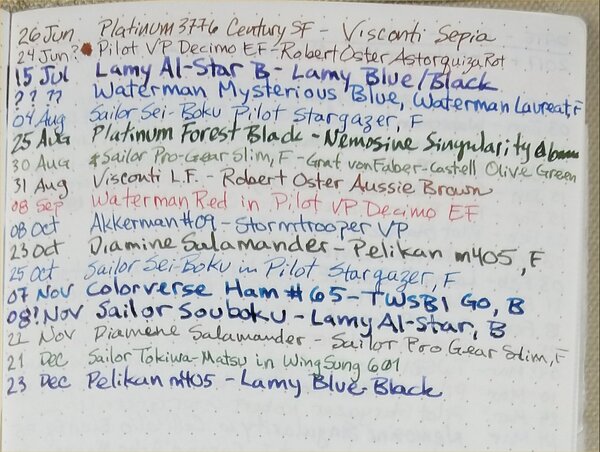 26 Jun Platinum 3776 Century SF - Visconti Sepia
24 Jun? Pilot VP Decimo EF - Robert Oster Astorquiza Rot
15 Jul Lamy Al-Star B - Lamy Blue/Black
?? ?? Waterman Mysterious Blue, Waterman Laureat, F
04 Aug Sailor Sei-Boku Pilot Stargazer, F
25 Aug Platinum Forest Black - Nemosine Singularity
30 Aug Sailor Pro-Gear Slim, F - Graf von Faber-Castell Olive Green
31 Aug Visconti L.F. - Robert Oster Aussie Brown
08 Sep Waterman Red in Pilot VP Decimo EF
08 Oct Akkerman #09 - Stormtrooper VP
23 Oct Diamine Salamander - Pelikan m405, F
25 Oct Sailor Sei-Boku in Pilot Stargazer, F
07 Nov Colorverse Ham #65 - TWSBI Go, B
08? Nov Sailor Souboku - Lamy Al-Star, B
22 Nov Diamene Salamander - Sailor Pro Gear Slim, F
21 Dec Sailor Tokiwa-Matsu in WingSung 601
23 Dec Pelikan m405 - Lamy Blue Black